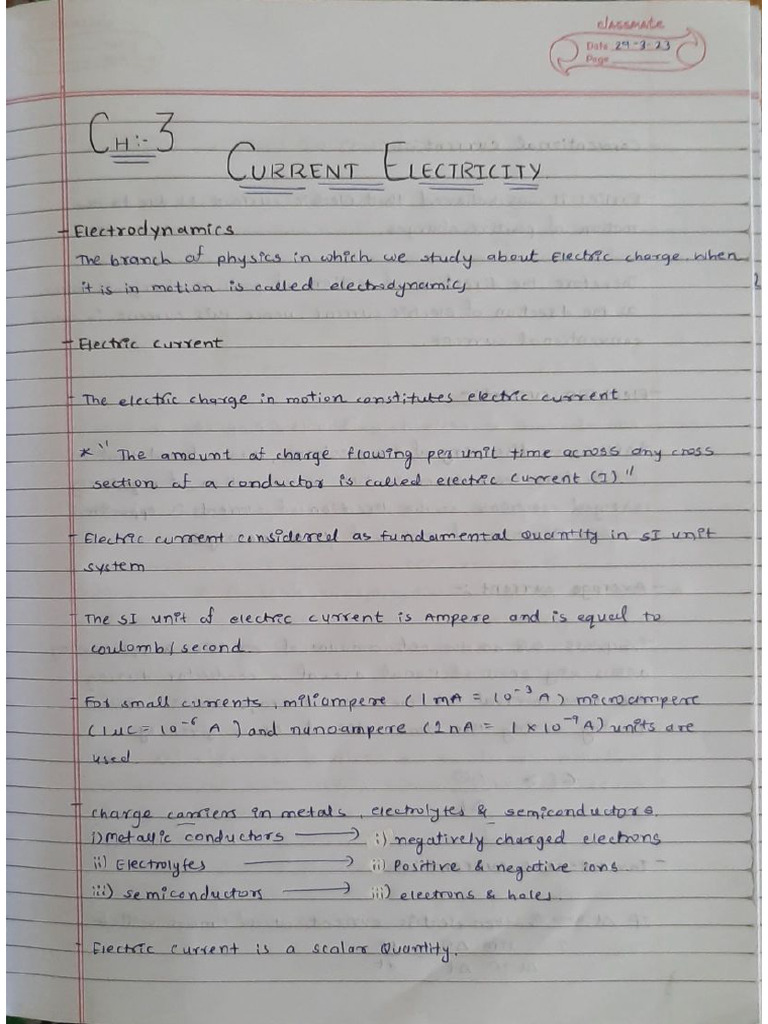 classmate
Date 29-3-23
Page
CH:- 3
CURRENT ELECTRICITY
- Electrodynamics
The branch of physics in which we study about Electric charge when
it is in motion is called electrodynamics
- Electric current
- The electric charge in motion constitutes electric current
* " The amount of charge flowing per unit time across any cross
section of a conductor is called electric current (I) "
- Electric current considered as fundamental Quantity in SI unit
system
- The SI unit of electric current is Ampere and is equal to
coulomb/second.
- For small currents, miliampere (1mA = 10⁻³ A) microampere
(1uc = 10⁻⁶ A) and nanoampere (1nA = 1 x 10⁻⁹ A) units are
used
- charge carriers in metals, electrolytes & semiconductors.
i) Metallic conductors → i) negatively charged electrons
ii) Electrolytes → ii) Positive & negative ions.
iii) semiconductors → iii) electrons & holes.
- Electric current is a scalar Quantity.